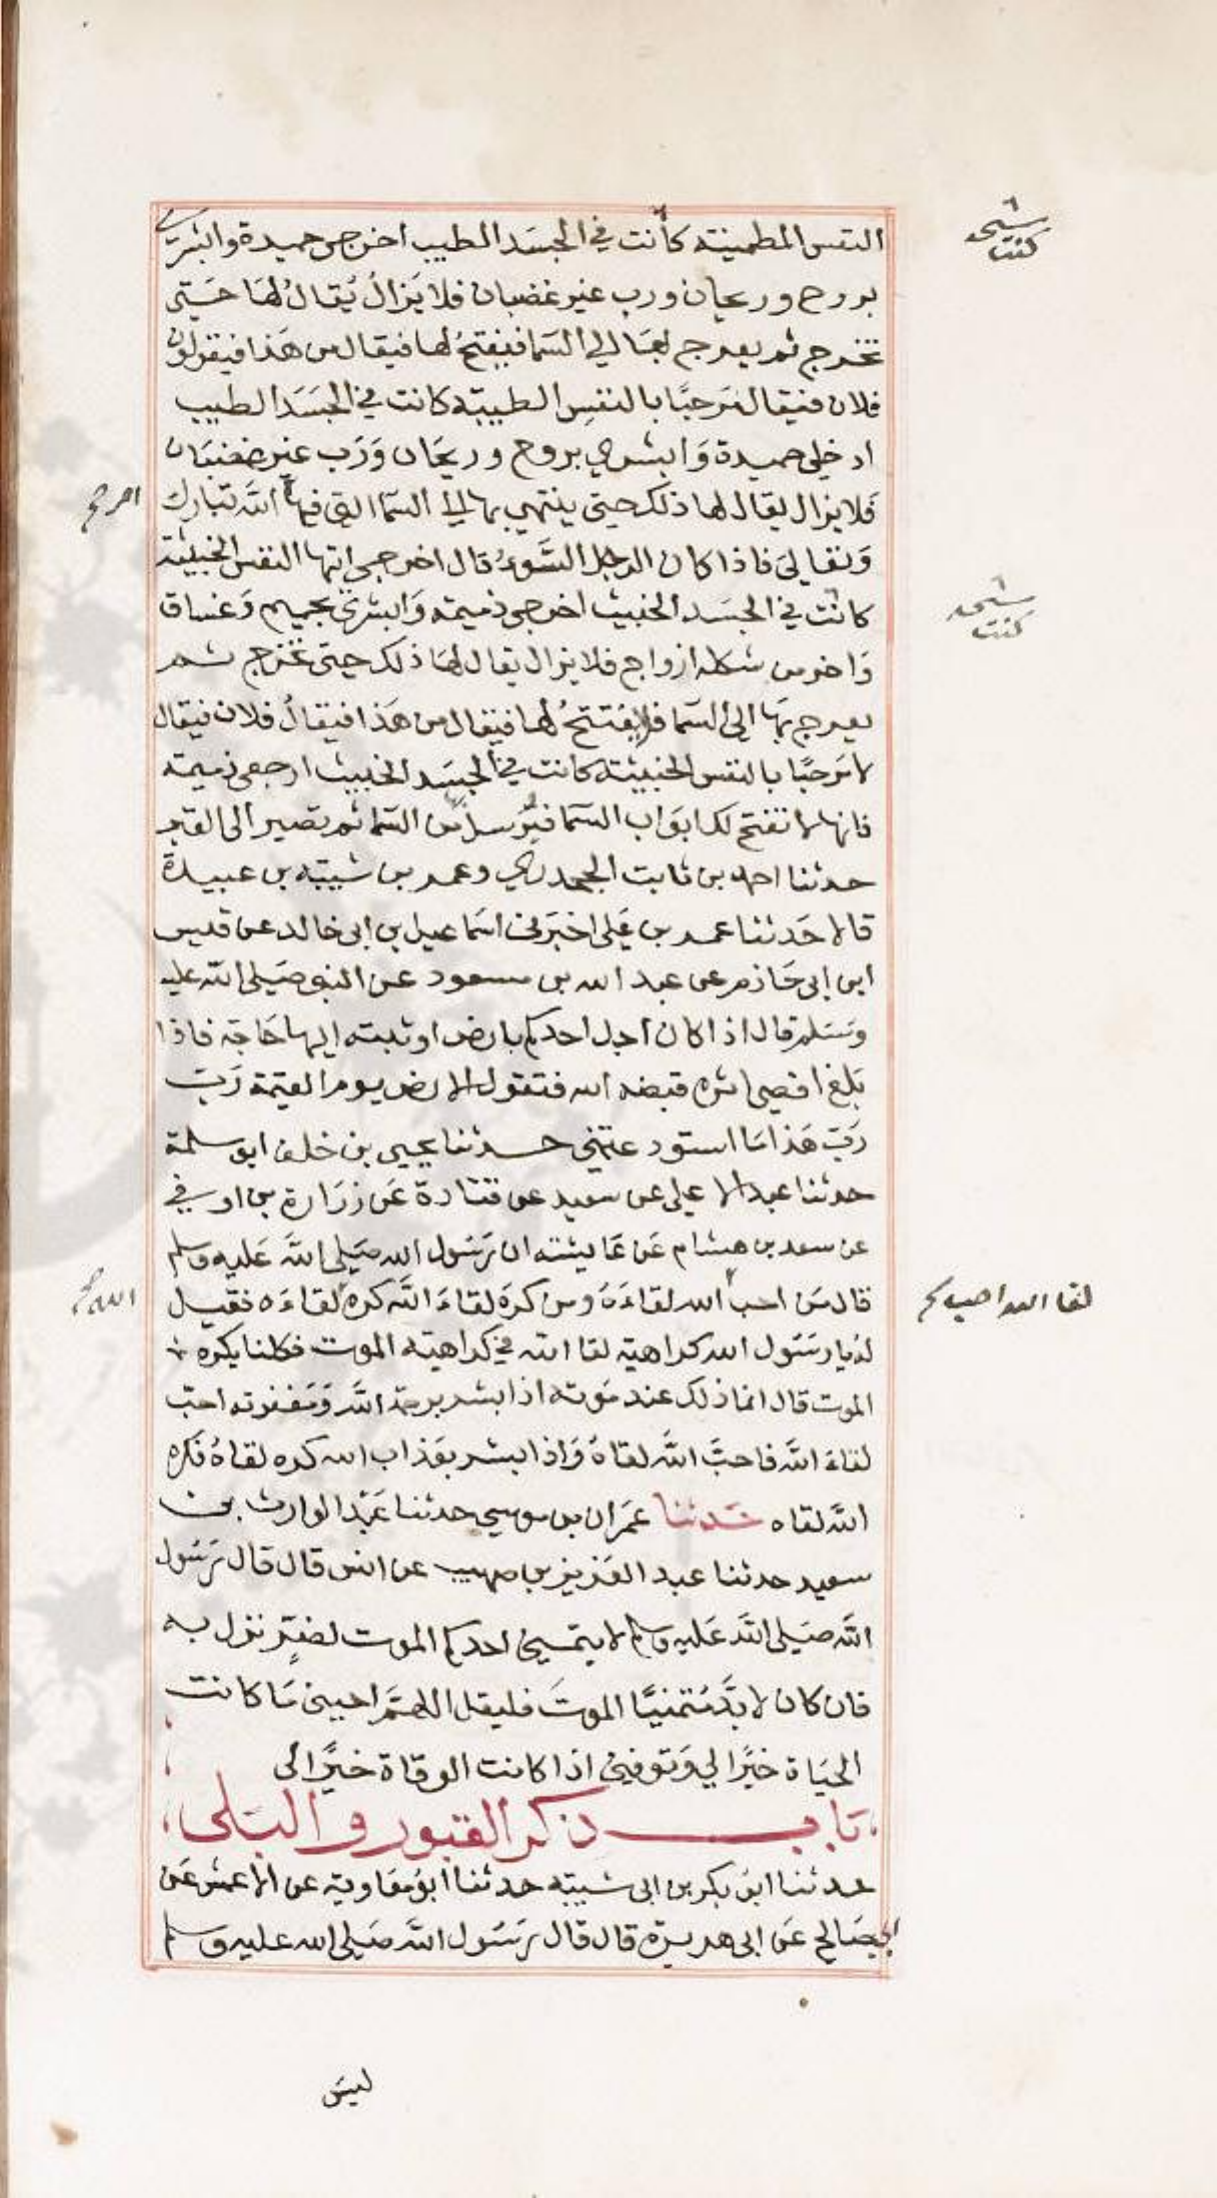 النفس المطمينه كانت في الجسد الطيب اخرجي حميدة وابشري
بروح وريحان ورب غير غضبان فلا يَزالُ يُقالُ لهَا حَتي
تخرج ثم يعرج بهَا الي السَما فيفتحُ لها فيقال من هَذا فيقولون
فلان فيقال مَرحبًا بالنفسِ الطيبة كانت في الجسَد الطيب
ادخلي حميدة وَابشري بروح وريحَان وَرَب غير غضبَان
فلا يزال يقال لها ذلك حتى ينتهي بها الي السَما التي فيها اللَّه تبارك
وَتعَالي فاذا كان الرجل السَّوءُ قال اخرجي ايتها النفس الخبيثة
كانت في الجسَد الخبيث اخرجي ذميمة وَابشري بحميم وَغساق
وَاخر من شكله ازواج فلا يزال يقال لهَا ذلك حتى تخرج ثم
يعرج بهَا الى السَما فلا يفتحُ لها فيقال من هَذا فيقالُ فلان فيقال
لا مَرحبًا بالنفس الخبيثة كانت في الجسَد الخبيث ارجعي ذميمة
فانها لا تفتح لك ابوَاب السَما فيُرسل من السَما ثم تصير الى القبر
حدثنا احمد بن ثابت الجحدري وعمر بن شيبة بن عبيدة
قالا حَدثنا عمر بن عَلي اخبَرني اسمَاعيل بن ابي خالد عن قيس
ابن ابي حَازم عن عبد الله بن مسعود عن النبي صَلى اللَّه عليه
وسَلم قال اذا كان اجل احدكم بارض اوثبته اليها حَاجة فاذا
بَلغ اقصى اثره قبضه الله فتقول الارض يوم القيمة رَبِّ
رَبِّ هَذا مَا استودعتني حدثنا يحيى بن خلف ابو سلمة
حدثنا عبد الاعلى عن سَعيد عن قتادة عَن زرَارة بن اوفي
عن سعد بن هشام عَن عَايشة ان رَسُول الله صَلى اللَّه عَليه وسلم
قال مَن احب الله لقاءَهُ ومن كرهَ لقاءَ اللَّه كره لقاءَه فقيل
لهُ يا رسَول الله كراهية لقا الله في كراهية الموت فكلنا يكره
الموت قال انما ذلك عند مَوته اذا بشر برحمة اللَّه وَمَغفرته احبّ
لقاءَ اللَّه فاحبَّ اللَّه لقاهُ وَاذا بشر بعَذاب الله كره لقاهُ فكره
اللَّه لقاه حَدثنا عمَران بن موسى حدثنا عَبْد الوارث بن
سعيد حدثنا عبد العَزيز بن صهيب عن انس قال قال رَسُول
اللَّه صَلى اللَّه عَليه وسلم لا يتمنى احدكم الموت لضرٍ نزل به
فان كان لا بدَّ مُتمنيًا الموتَ فليقل اللهمّ احيني مَا كانت
الحيَاة خيرًا لي وَتوفني اذا كانت الوفاة خيرًا لي
بَاب ذكر القبور والبَلى
حدثنا ابوُ بكر بن ابي شيبة حدثنا ابوُ مَعَاوية عن الاعمش عَن
ابي صَالح عَن ابي هريرة قال قال رَسُول اللَّه صَلى الله عليه وسلم
ليسَ
كنت
كنت
لقا الله احب
الله